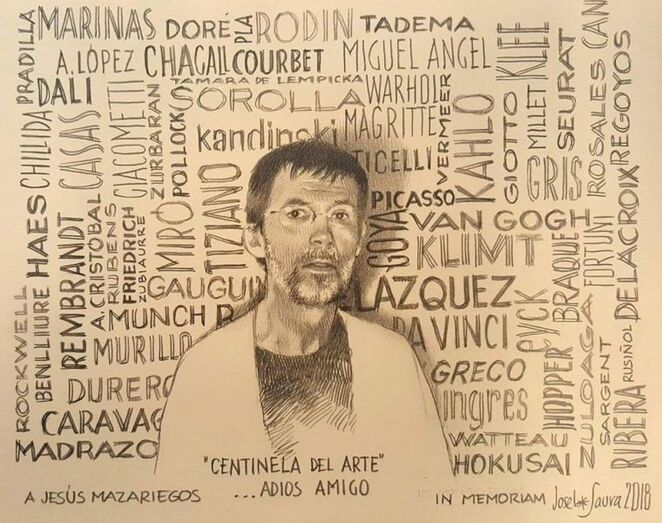 PRADILLA
MARINAS DORÉ PLA RODIN TADEMA KLEE SEURAT CAN
A. LÓPEZ CHAGALL COURBET MIGUEL ANGEL
TAMARA DE LEMPICKA
DALI GIACOMETTI ZURBARAN POLLOCK SOROLLA WARHOL VERMEER KAHLO GIOTTO MILLET ROSALES REGOYOS
CHILLIDA CASAS kandinski MAGRITTE
TICELLI GRIS
HAES REMBRANDT A.CRISTOBAL RUBENS FRIEDRICH ZUBIAURRE MIRÓ TIZIANO GOYA PICASSO
VAN GOGH FORTUNY DELACROIX
KLIMT BRAQUE
ROCKWELL BENLLIURE GAUGUIN LAZQUEZ EYCK
MUNCH DA VINCI ZULOAGA RUSIÑOL
MURILLO GRECO HOPPER SARGENT RIBERA
DURERO Ingres
CARAVAG WATTEAU
MADRAZO HOKUSAI
"CENTINELA DEL ARTE"
...ADIOS AMIGO
A JESÚS MAZARIEGOS IN MEMORIAM Josel* Saura 2018